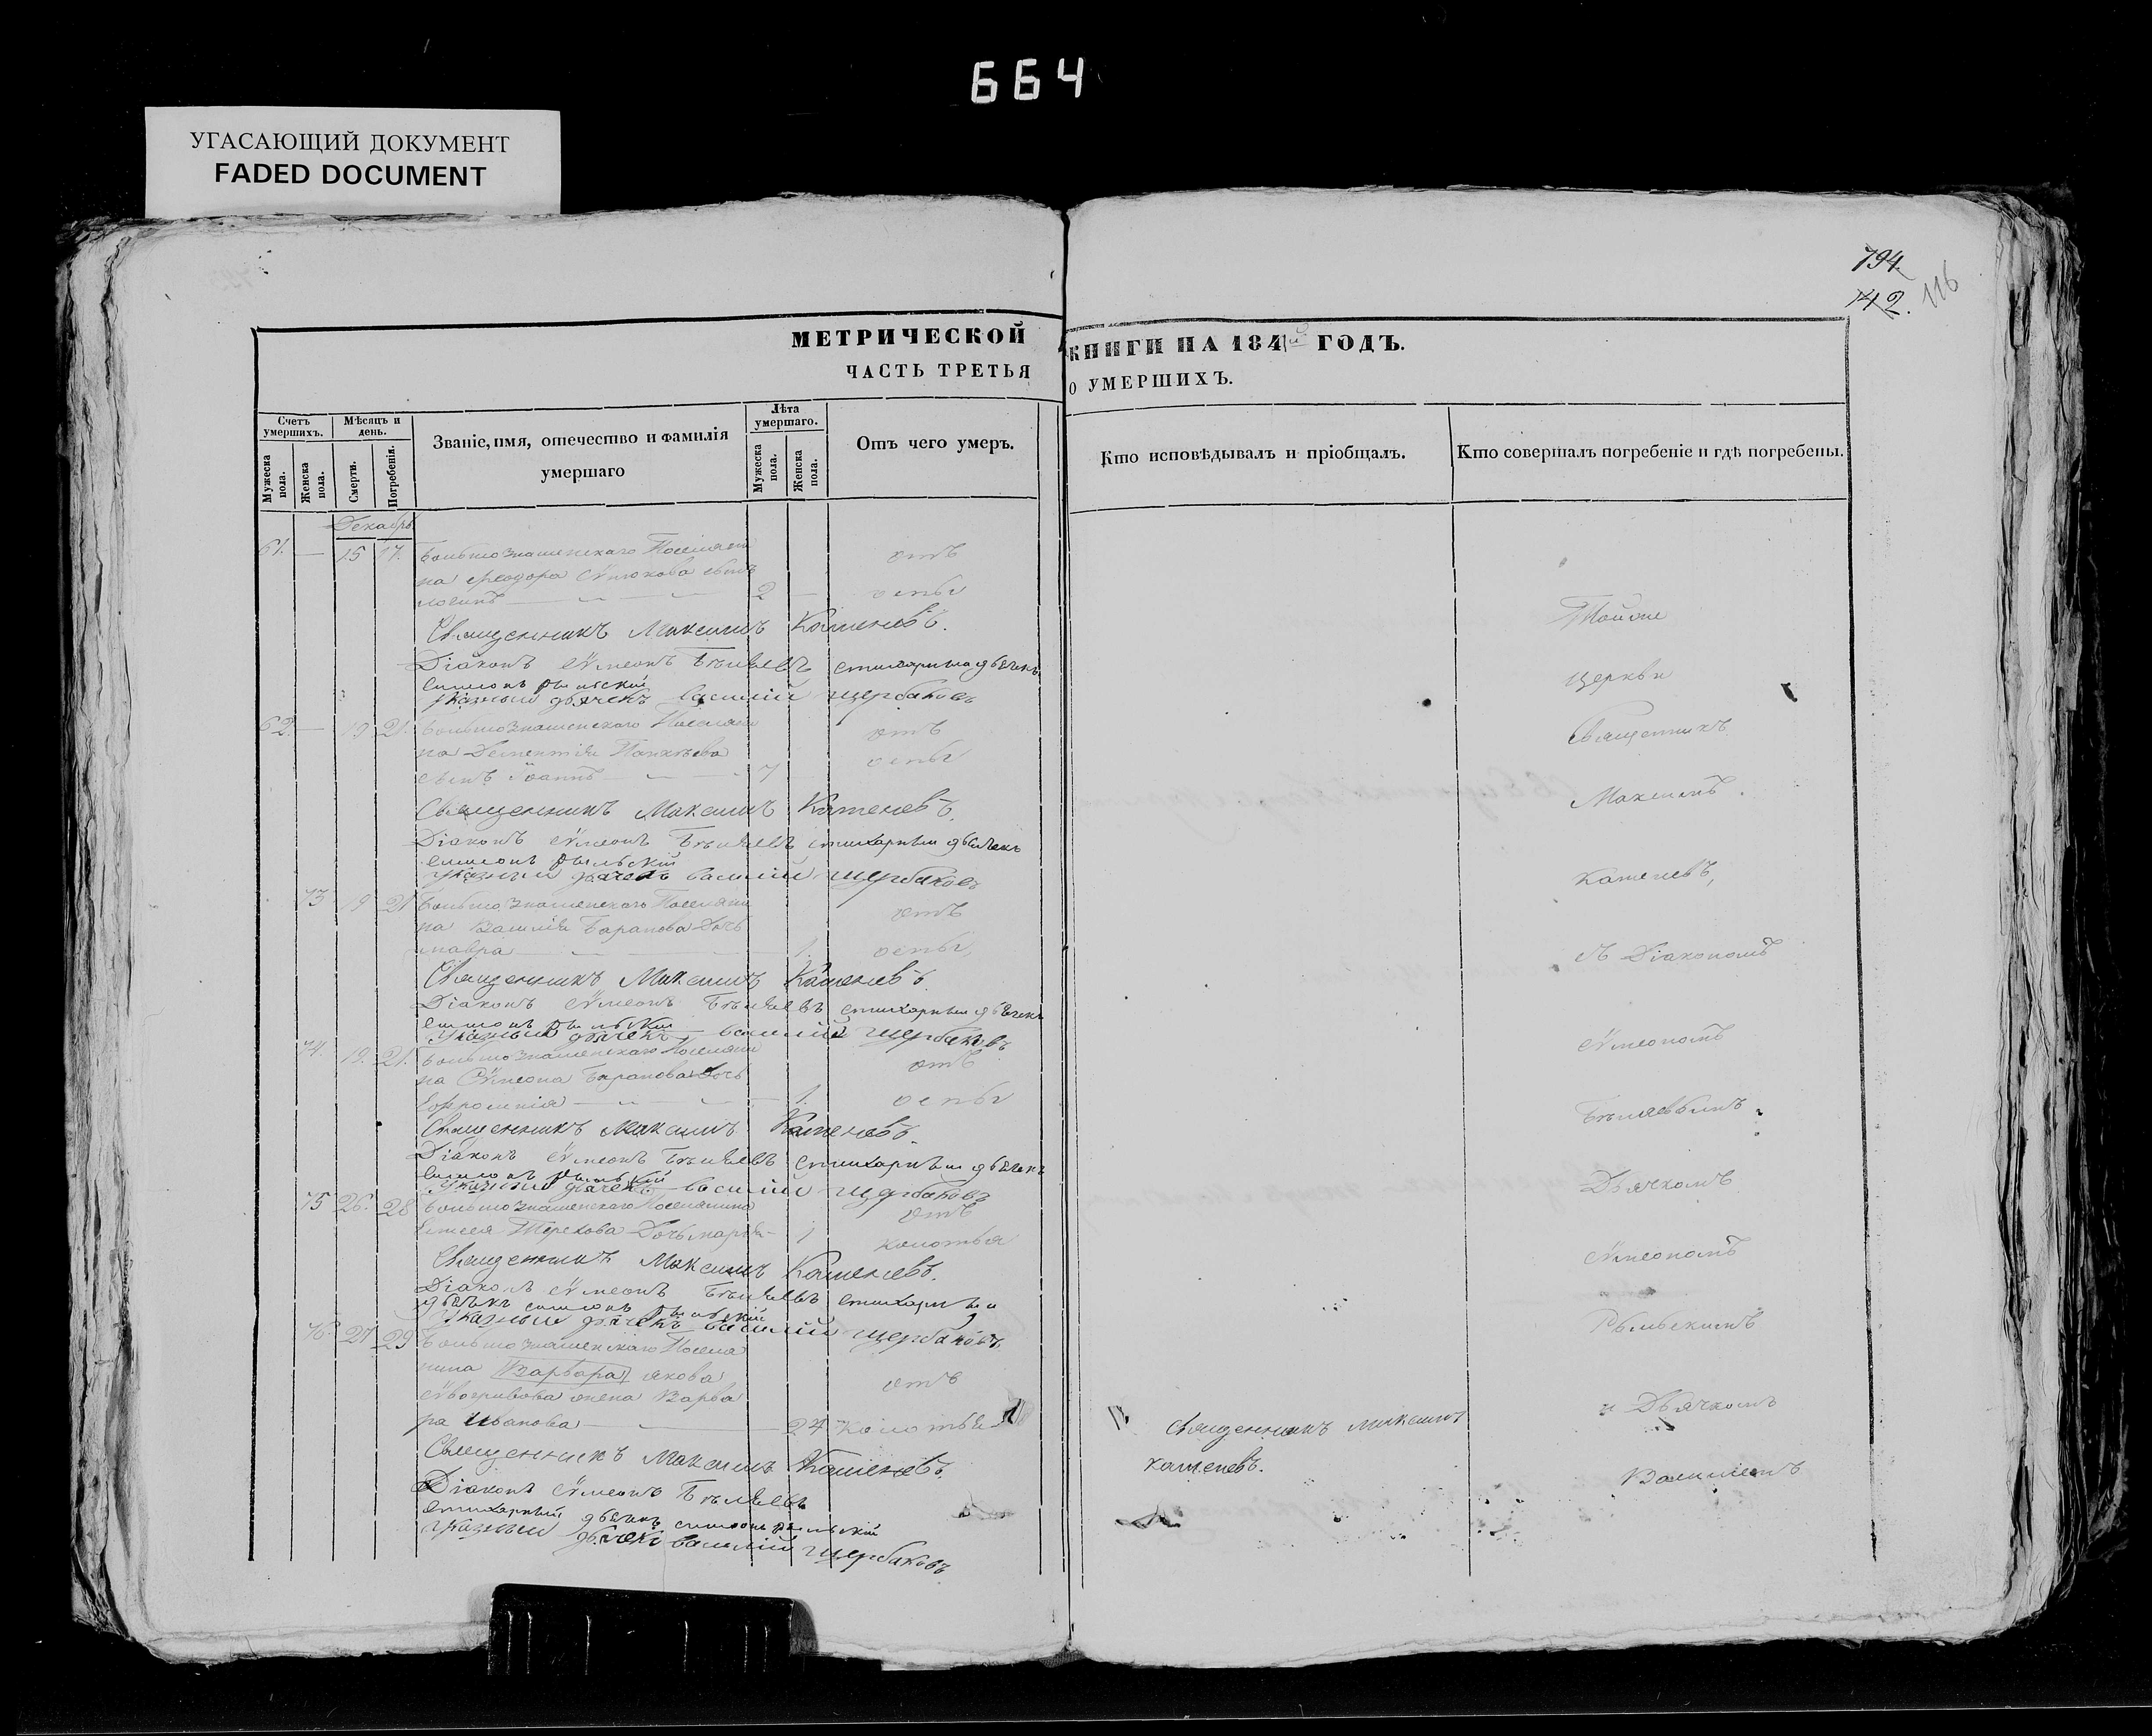 664
УГАСАЮЩИЙ ДОКУМЕНТ
FADED DOCUMENT
794
142.
116
МЕТРИЧЕСКОЙ
КНИГИ НА 184 ГОДЪ.
ЧАСТЬ ТРЕТЬЯ
О УМЕРШИХЪ.
Счетъ умершихъ.
Мужеска пола.
Женска пола.
Мѣсяцъ и день.
Смерти.
Погребенія.
Званіе, имя, отечество и фамилія
умершаго
Лѣта умершаго.
Мужеска пола.
Женска пола.
Отъ чего умеръ.
Кто исповѣдывалъ и пріобщалъ.
Кто совершалъ погребеніе и гдѣ погребены.
Декабрь
61. — 15 17. Большознаменскаго Поселяни отъ
на Ѳеодора сынъ
логинъ 2 — оспы
Священникъ Максимъ Каменевъ.
Діаконъ Сѵмеонъ Бѣляевъ стихарный дьячекъ
симеонъ рыльскій
указный дьячекъ василій щербаковъ
62. — 19 21. Большознаменскаго Поселяни отъ
на Дементія
сынъ Іоаннъ 7 оспы
Священникъ Максимъ Каменевъ.
Діаконъ Сѵмеонъ Бѣляевъ стихарный дьячекъ
симеонъ рыльскій
указный дьячекъ василій щербаковъ
73 19 21 Большознаменскаго Поселяни отъ
на Василія Баранова Дочь
мавра 1. оспы,
Священникъ Максимъ Каменевъ.
Діаконъ Сѵмеонъ Бѣляевъ стихарный дьячекъ
симеонъ рыльскій
указный дьячекъ василій щербаковъ
74. 19. 21. Большознаменскаго Поселяни отъ
на Сѵмеона Баранова Дочь
Ефросинія 1. оспы
Священникъ Максимъ Каменевъ.
Діаконъ Сѵмеонъ Бѣляевъ стихарный дьячекъ
симеонъ рыльскій
указный дьячекъ василій щербаковъ
75 26. 28 Большознаменскаго Поселянина отъ
Елисея Терехова Дочь марія 1 колотья
Священникъ Максимъ Каменевъ.
Діаконъ Сѵмеонъ Бѣляевъ стихарный
дьячекъ симеонъ рыльскій
указный дьячекъ василій щербаковъ
76. 27 29 Большознаменскаго Поселя
нина Варвара якова отъ
жена Варва
ра Иванова 24 колотья
Священникъ Максимъ Каменевъ.
Діаконъ Сѵмеонъ Бѣляевъ
стихарный дьячекъ симеонъ рыльскій
указный дьячекъ василій щербаковъ
Священникъ максимъ
каменевъ.
Тойже
церкви
Священникъ
Максимъ
Каменевъ,
съ Діакономъ
Сѵмеономъ
Бѣляевымъ
Дьячкомъ
Сѵмеономъ
Рыльскимъ
и Дьячкомъ
Василіемъ